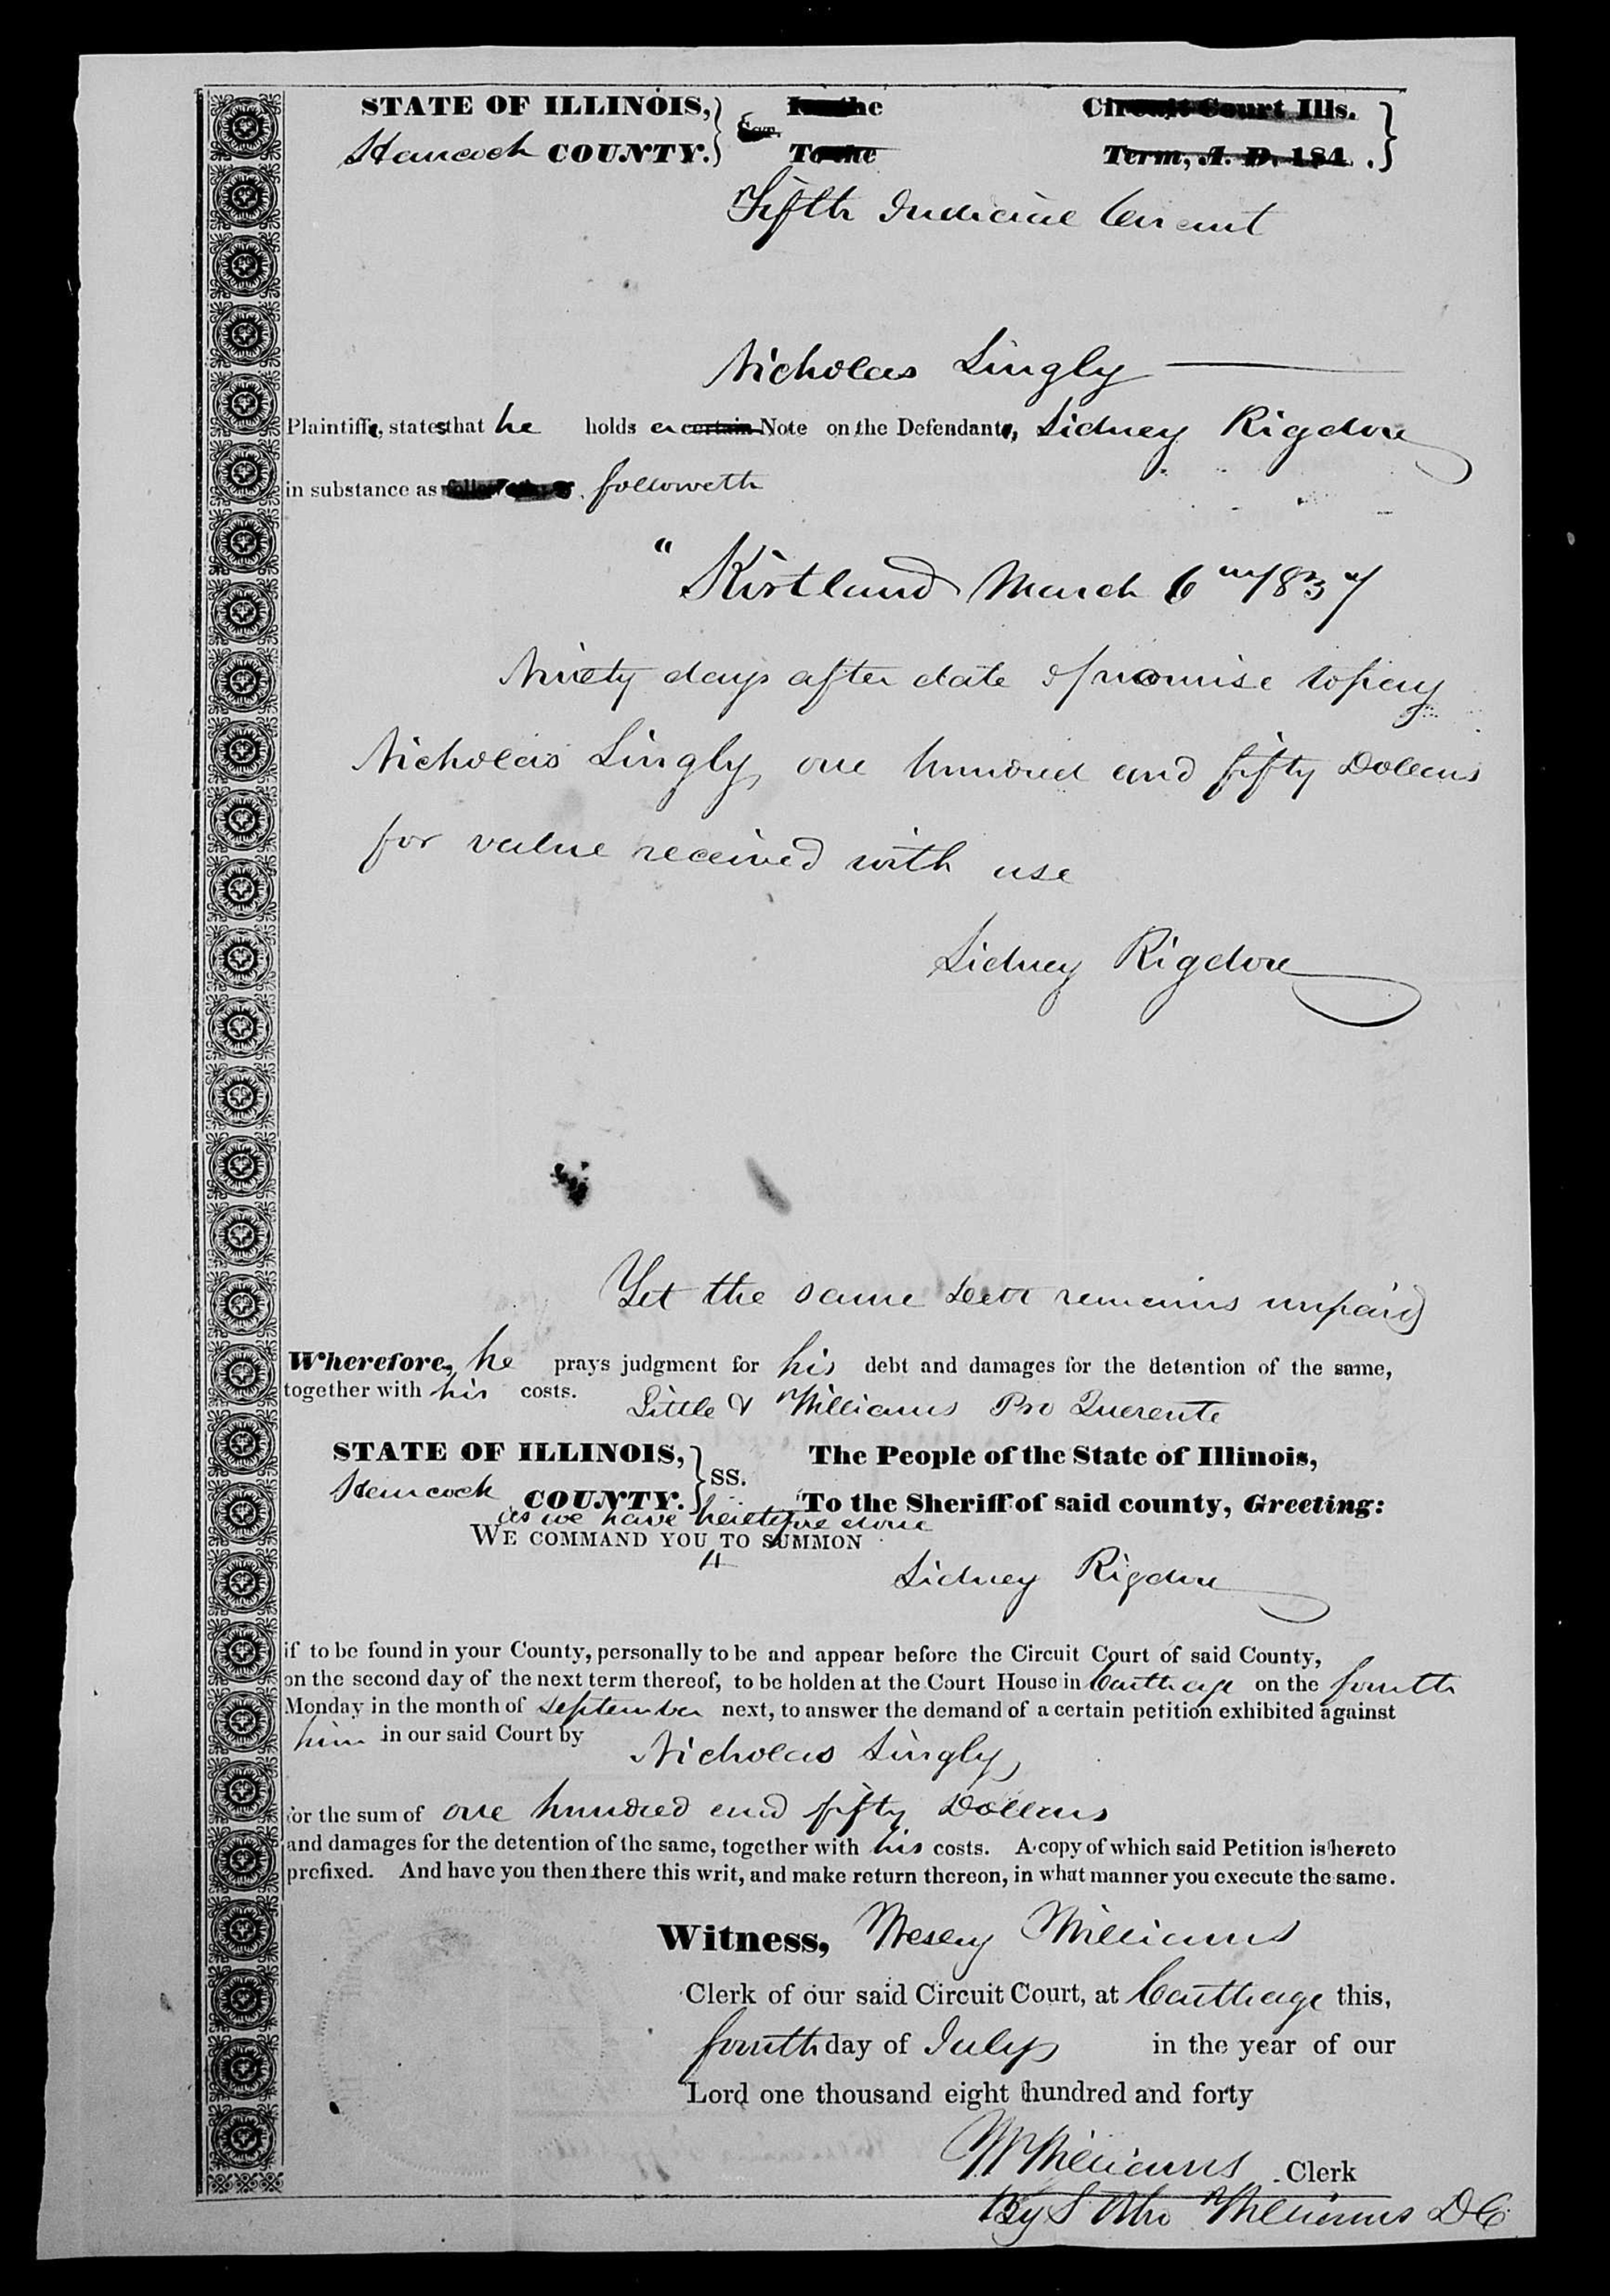 STATE OF ILLINOIS, In the Circuit Court Ills.
Hancock COUNTY. To the Term, A. D. 184 .
Fifth Judicial Circuit
Nicholas Lingly
Plaintiffs, states that he holds a certain Note on the Defendants, Sidney Rigdon
in substance as followeth
" Kirtland March 6 1837
Ninety days after date I promise to pay
Nicholas Lingly one hundred and fifty Dollars
for value received with use
Sidney Rigdon
Yet the same Debt remains unpaid
Wherefore, he prays judgment for his debt and damages for the detention of the same,
together with his costs.
Little & Williams Pro Querente
STATE OF ILLINOIS, The People of the State of Illinois,
SS.
Hancock COUNTY. To the Sheriff of said county, Greeting:
as we have heretofore done
WE COMMAND YOU TO SUMMON
Sidney Rigdon
if to be found in your County, personally to be and appear before the Circuit Court of said County,
on the second day of the next term thereof, to be holden at the Court House in Carthage on the fourth
Monday in the month of September next, to answer the demand of a certain petition exhibited against
him in our said Court by
Nicholas Lingly
for the sum of one hundred and fifty Dollars
and damages for the detention of the same, together with his costs. A copy of which said Petition is hereto
prefixed. And have you then there this writ, and make return thereon, in what manner you execute the same.
Witness, Wesley Williams
Clerk of our said Circuit Court, at Carthage this,
fourth day of July in the year of our
Lord one thousand eight hundred and forty
W Williams Clerk
By S Otho Williams DC